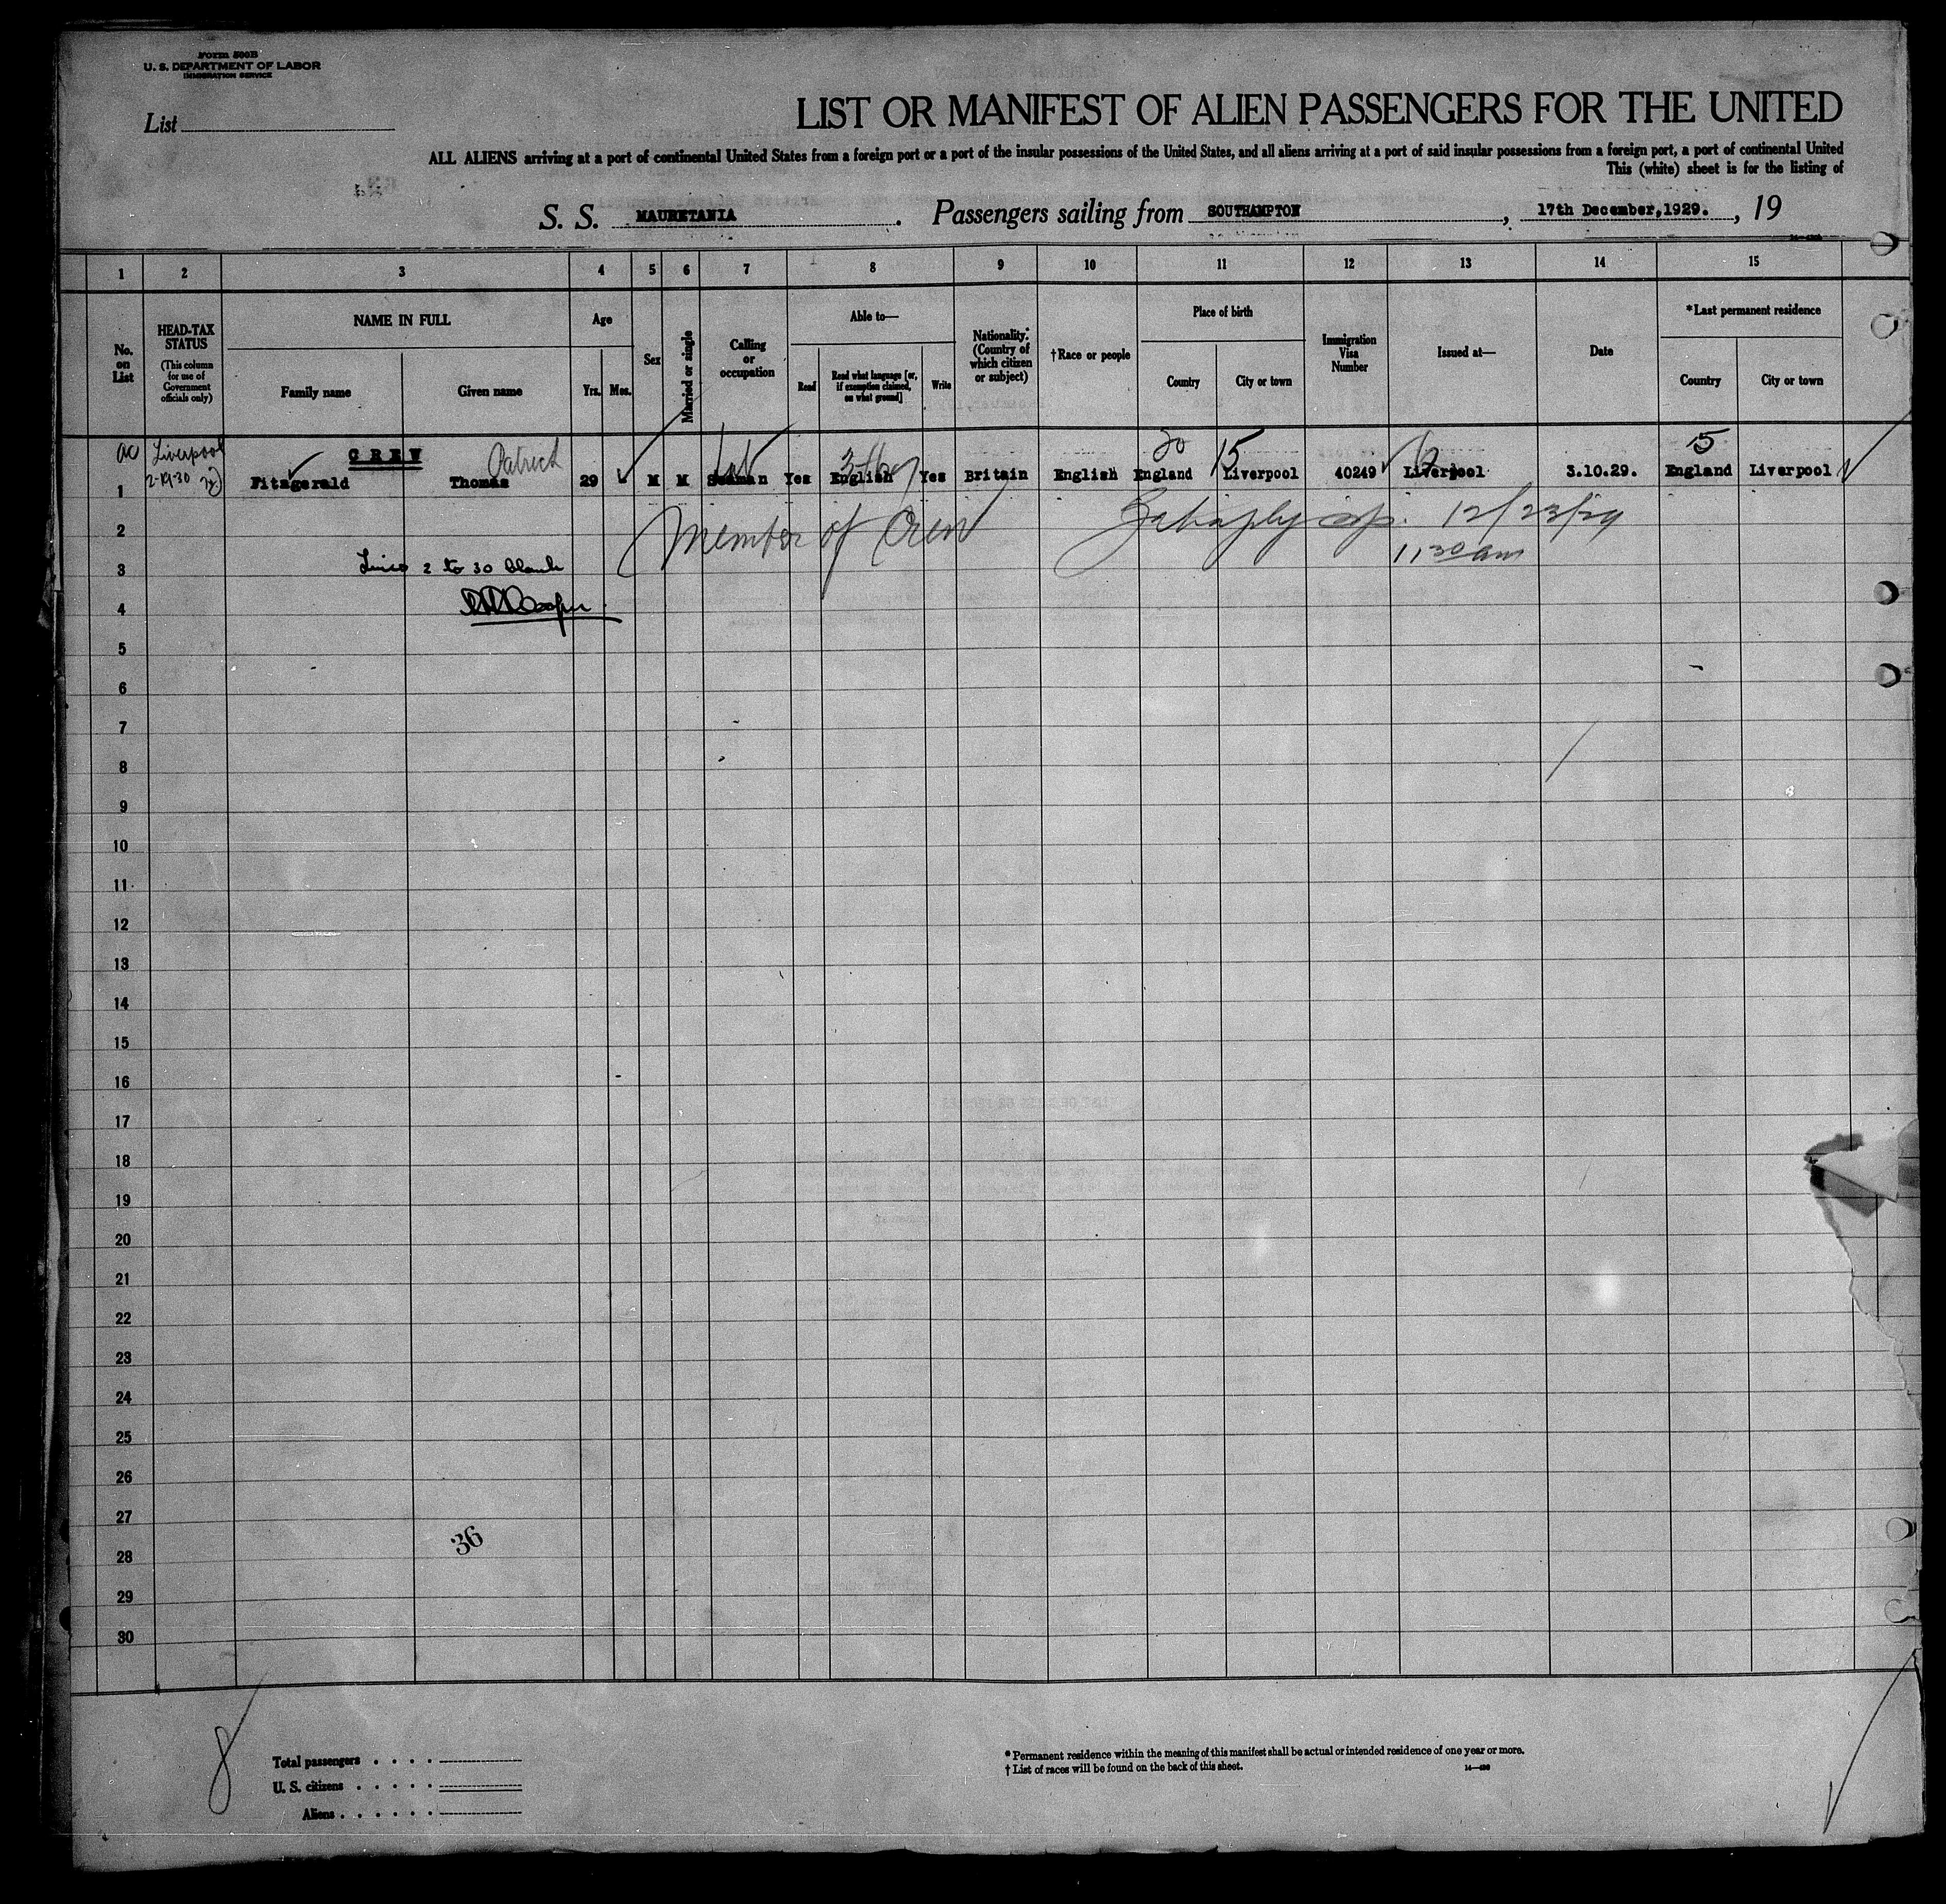 Form 500B
U. S. DEPARTMENT OF LABOR
IMMIGRATION SERVICE
List
LIST OR MANIFEST OF ALIEN PASSENGERS FOR THE UNITED
ALL ALIENS arriving at a port of continental United States from a foreign port or a port of the insular possessions of the United States, and all aliens arriving at a port of said insular possessions from a foreign port, a port of continental United
This (white) sheet is for the listing of
S. S. MAURETANIA. Passengers sailing from SOUTHAMPTON, 17th December, 1929., 19
1 2 3 4 5 6 7 8 9 10 11 12 13 14 15
No. on List
HEAD-TAX STATUS
(This column for use of Government officials only)
NAME IN FULL
Family name
Given name
Age
Yrs.
Mos.
Sex
Married or single
Calling or occupation
Able to—
Read
Read what language [or, if exemption claimed, on what ground]
Write
Nationality. (Country of which citizen or subject)
†Race or people
Place of birth
Country
City or town
Immigration Visa Number
Issued at—
Date
*Last permanent residence
Country
City or town
ac Liverpool CREW Patrick 20 15 5
2-19-30
1 Fitzgerald Thomas 29 M M Seaman Yes English Yes Britain English England Liverpool 40249 Liverpool 3.10.29. England Liverpool
2 Member of Crew 12/23/29
11 30 am
3 Lines 2 to 30 blank
4
5
6
7
8
9
10
11
12
13
14
15
16
17
18
19
20
21
22
23
24
25
26
27
36
28
29
30
8
Total passengers . . . .
U. S. citizens . . . . .
Aliens . . . . . .
* Permanent residence within the meaning of this manifest shall be actual or intended residence of one year or more.
† List of races will be found on the back of this sheet.